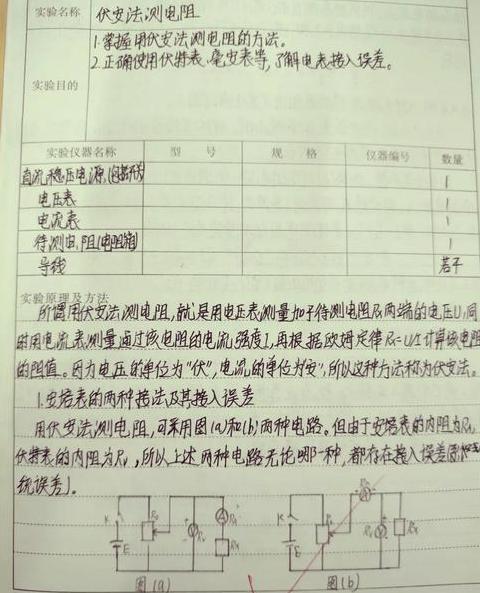 实验名称 伏安法测电阻
1.掌握用伏安法测电阻的方法。
2.正确使用伏特表、毫安表等,了解电表接入误差。
实验目的
实验仪器名称 型 号 规 格 仪器编号 数量
直流稳压电源 1
电压表 1
电流表 1
待测电阻(电阻箱) 1
导线 若干
实验原理及方法
所谓用伏安法测电阻,就是用电压表测量加于待测电阻Rx两端的电压U,同
时用电流表测量通过该电阻的电流强度I,再根据欧姆定律Rx=U/I计算该电阻
的阻值。因为电压的单位为"伏",电流的单位为"安",所以这种方法称为伏安法。
1.安培表的两种接法及其接入误差
用伏安法测电阻,可采用图(a)和(b)两种电路。但由于安培表的内阻为RA,
伏特表的内阻为Rv,所以上述两种电路无论哪一种,都存在接入误差
统误差)。
K E R0 V Rv A Rx
K E R0 A Rv V Rx
图(a) 图(b)